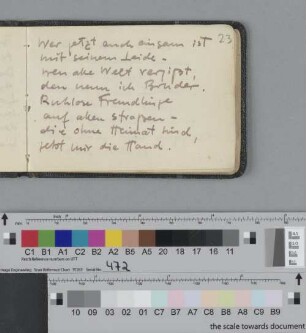 Wer jetzt auch einsam ist
23
mit seinem Leide –
wen alle Welt vergißt,
den nenn ich Bruder.
Ruhlose Fremdlinge
auf allen Strassen –
die ohne Heimat sind,
gebt mir die Hand.
C1 B1 A1 C2 B2 A2 B5 A5 20 18 17 16 11
472
10 09 03 02 01 C7 B7 A7 C8 B8 A8 C9 B9
the scale towards document